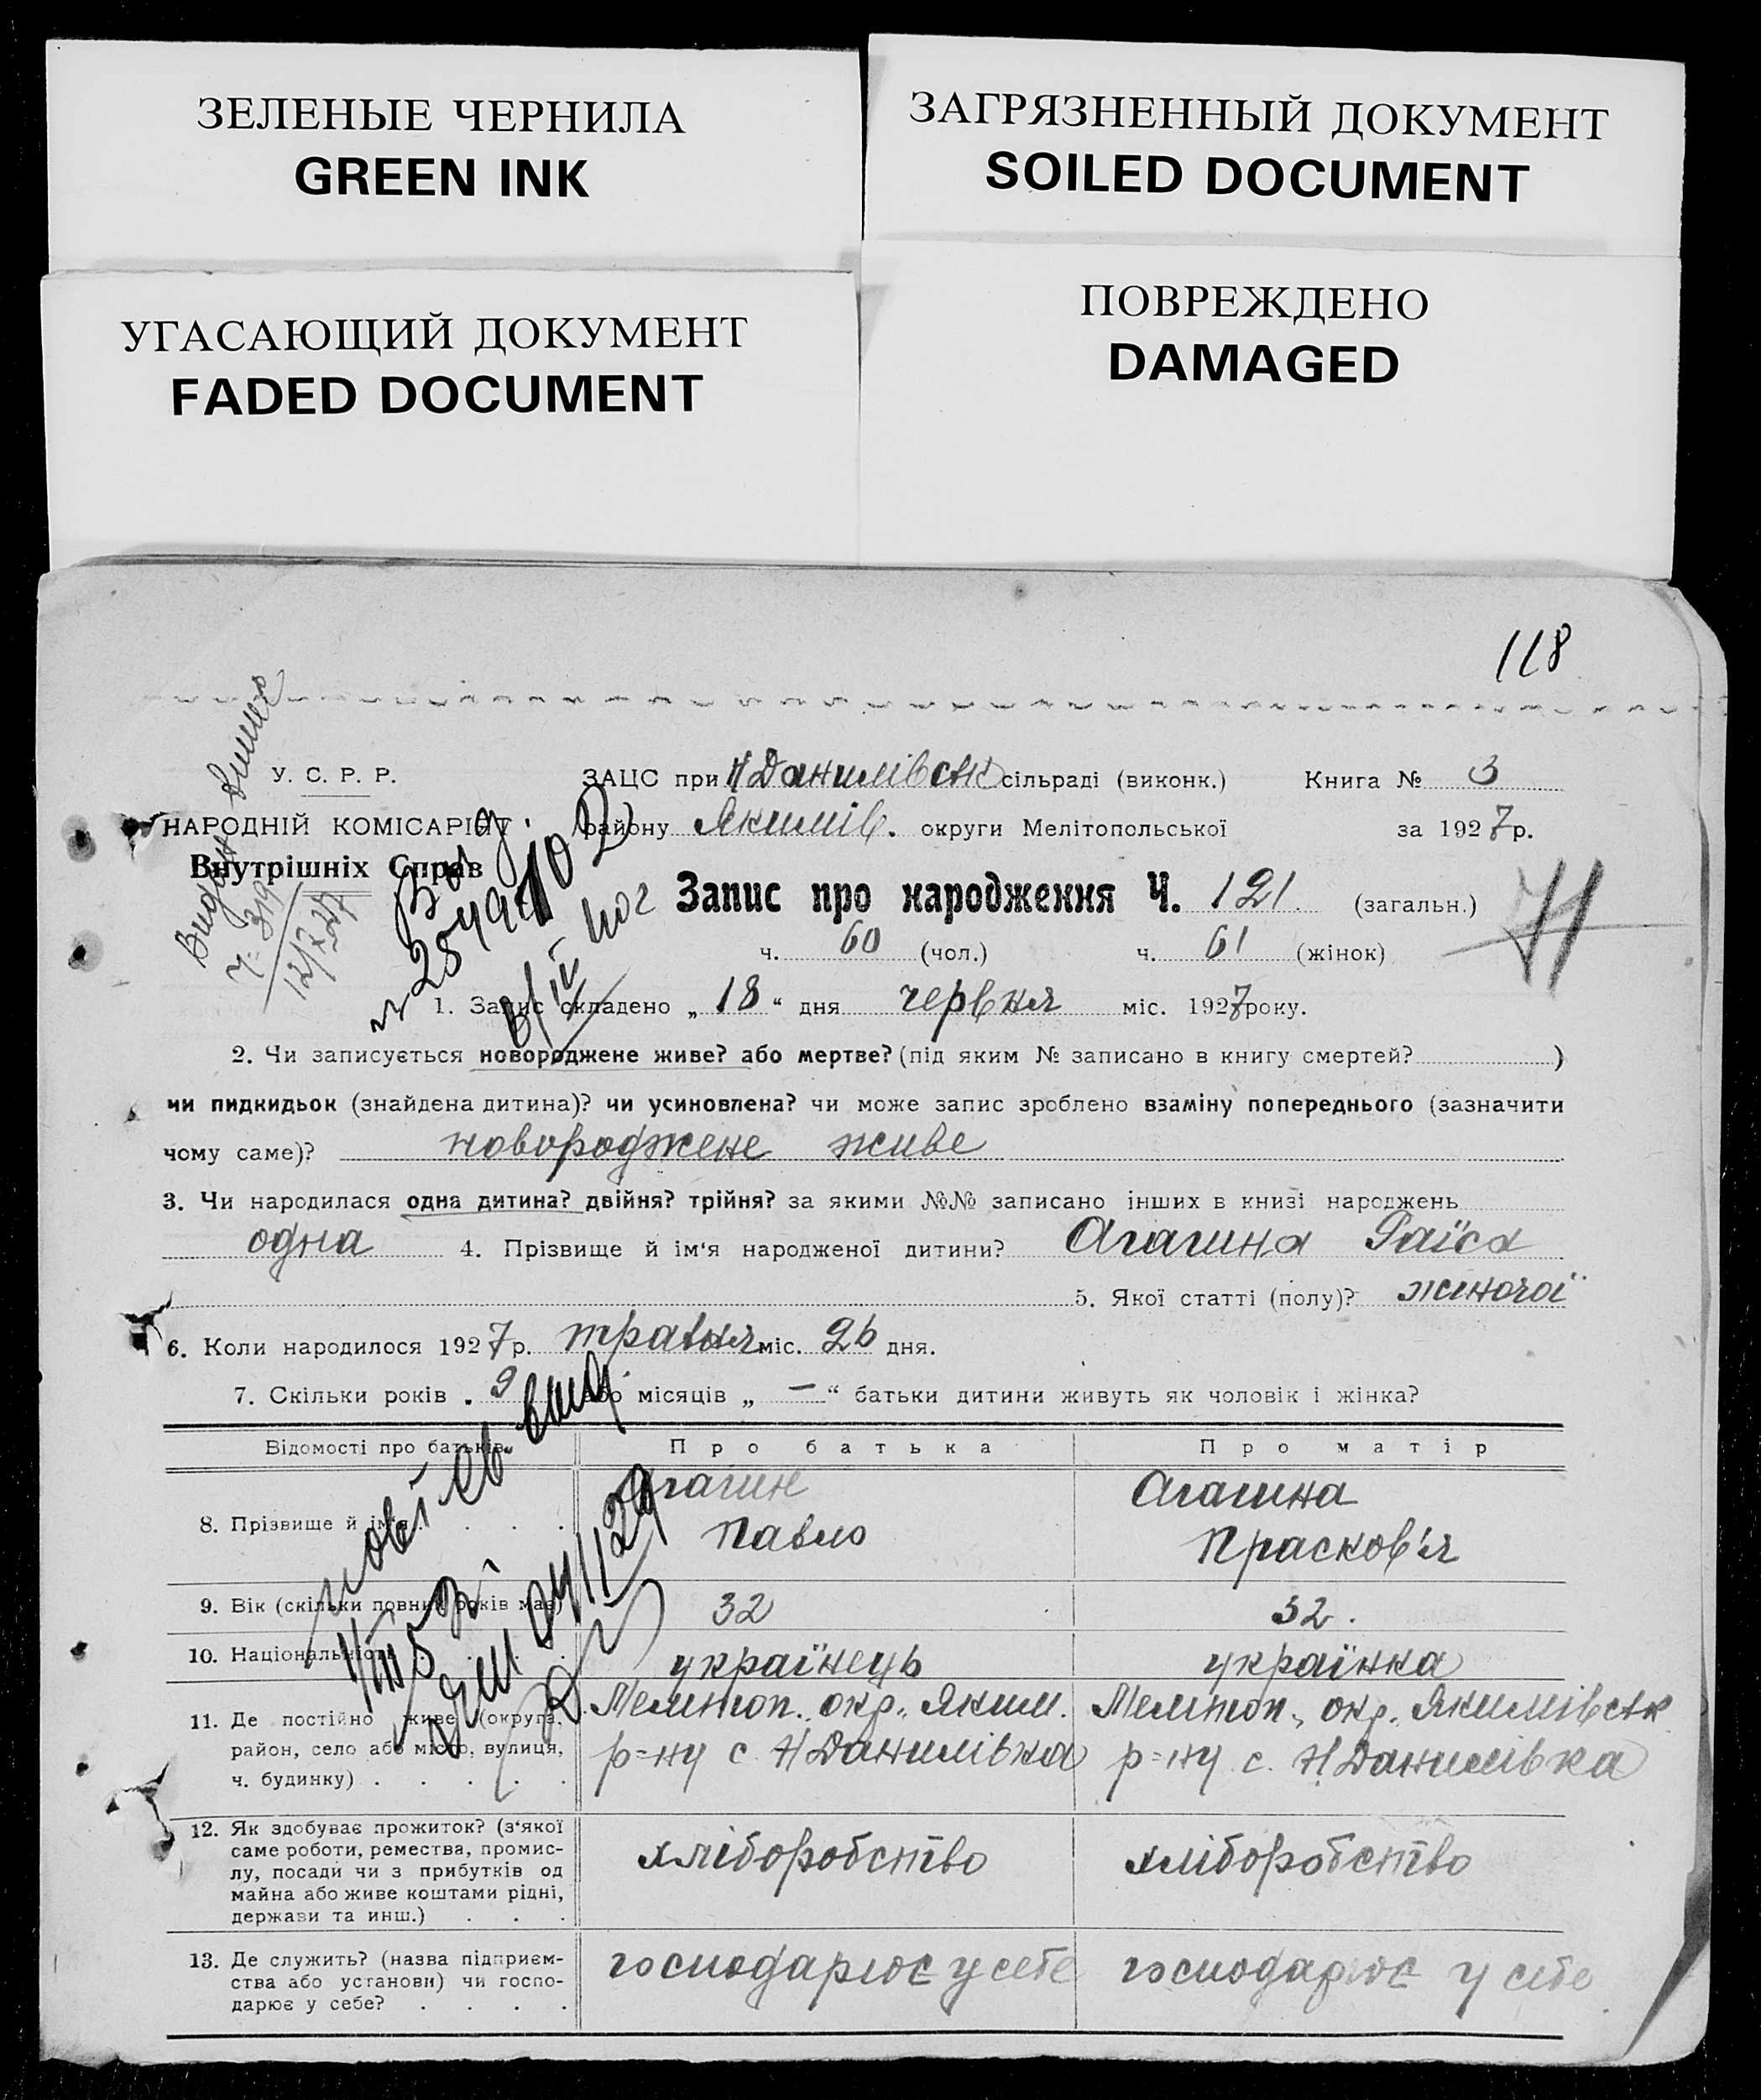 ЗЕЛЕНЫЕ ЧЕРНИЛА
GREEN INK
ЗАГРЯЗНЕННЫЙ ДОКУМЕНТ
SOILED DOCUMENT
УГАСАЮЩИЙ ДОКУМЕНТ
FADED DOCUMENT
ПОВРЕЖДЕНО
DAMAGED
118
У. С. Р. Р.
НАРОДНІЙ КОМІСАРІЯТ
Внутрішніх Справ
ЗАЦС при Н Данилівськ сільраді (виконк.) Книга № 3
району Якимів. округи Мелітопольської за 1927 р.
Запис про народження Ч. 121 (загальн.)
ч. 60 (чол.) ч. 61 (жінок)
1. Запис складено „ 18 “ дня червня міс. 1927 року.
2. Чи записується новороджене живе? або мертве? (під яким № записано в книгу смертей? )
чи пидкидьок (знайдена дитина)? чи усиновлена? чи може запис зроблено взаміну попереднього (зазначити
чому саме)? новороджене живе
3. Чи народилася одна дитина? двійня? трійня? за якими №№ записано інших в книзі народжень
одна 4. Прізвище й ім'я народженої дитини? Агагина Раїса
5. Якої статті (полу)? жіночої
6. Коли народилося 1927 р. травня міс. 26 дня.
7. Скільки років „ 9 або місяців „ — “ батьки дитини живуть як чоловік і жінка?
Відомості про батьків Про батька Про матір
8. Прізвище й ім'я Агагин Павло Агагина Прасков'я
9. Вік (скільки повних років має) 32 32.
10. Національність українець українка
11. Де постійно живе (округа, район, село або місто, вулиця, ч. будинку) Мелітоп. окр., Яким. р=ну с. Н Данилівка Мелітоп., окр. Якимівськ р=ну с. Н Данилівка
12. Як здобуває прожиток? (з'якої саме роботи, ремества, промислу, посади чи з прибутків од майна або живе коштами рідні, держави та инш.) хліборобство хліборобство
13. Де служить? (назва підприємства або установи) чи господарює у себе? господарює у себе господарює у себе